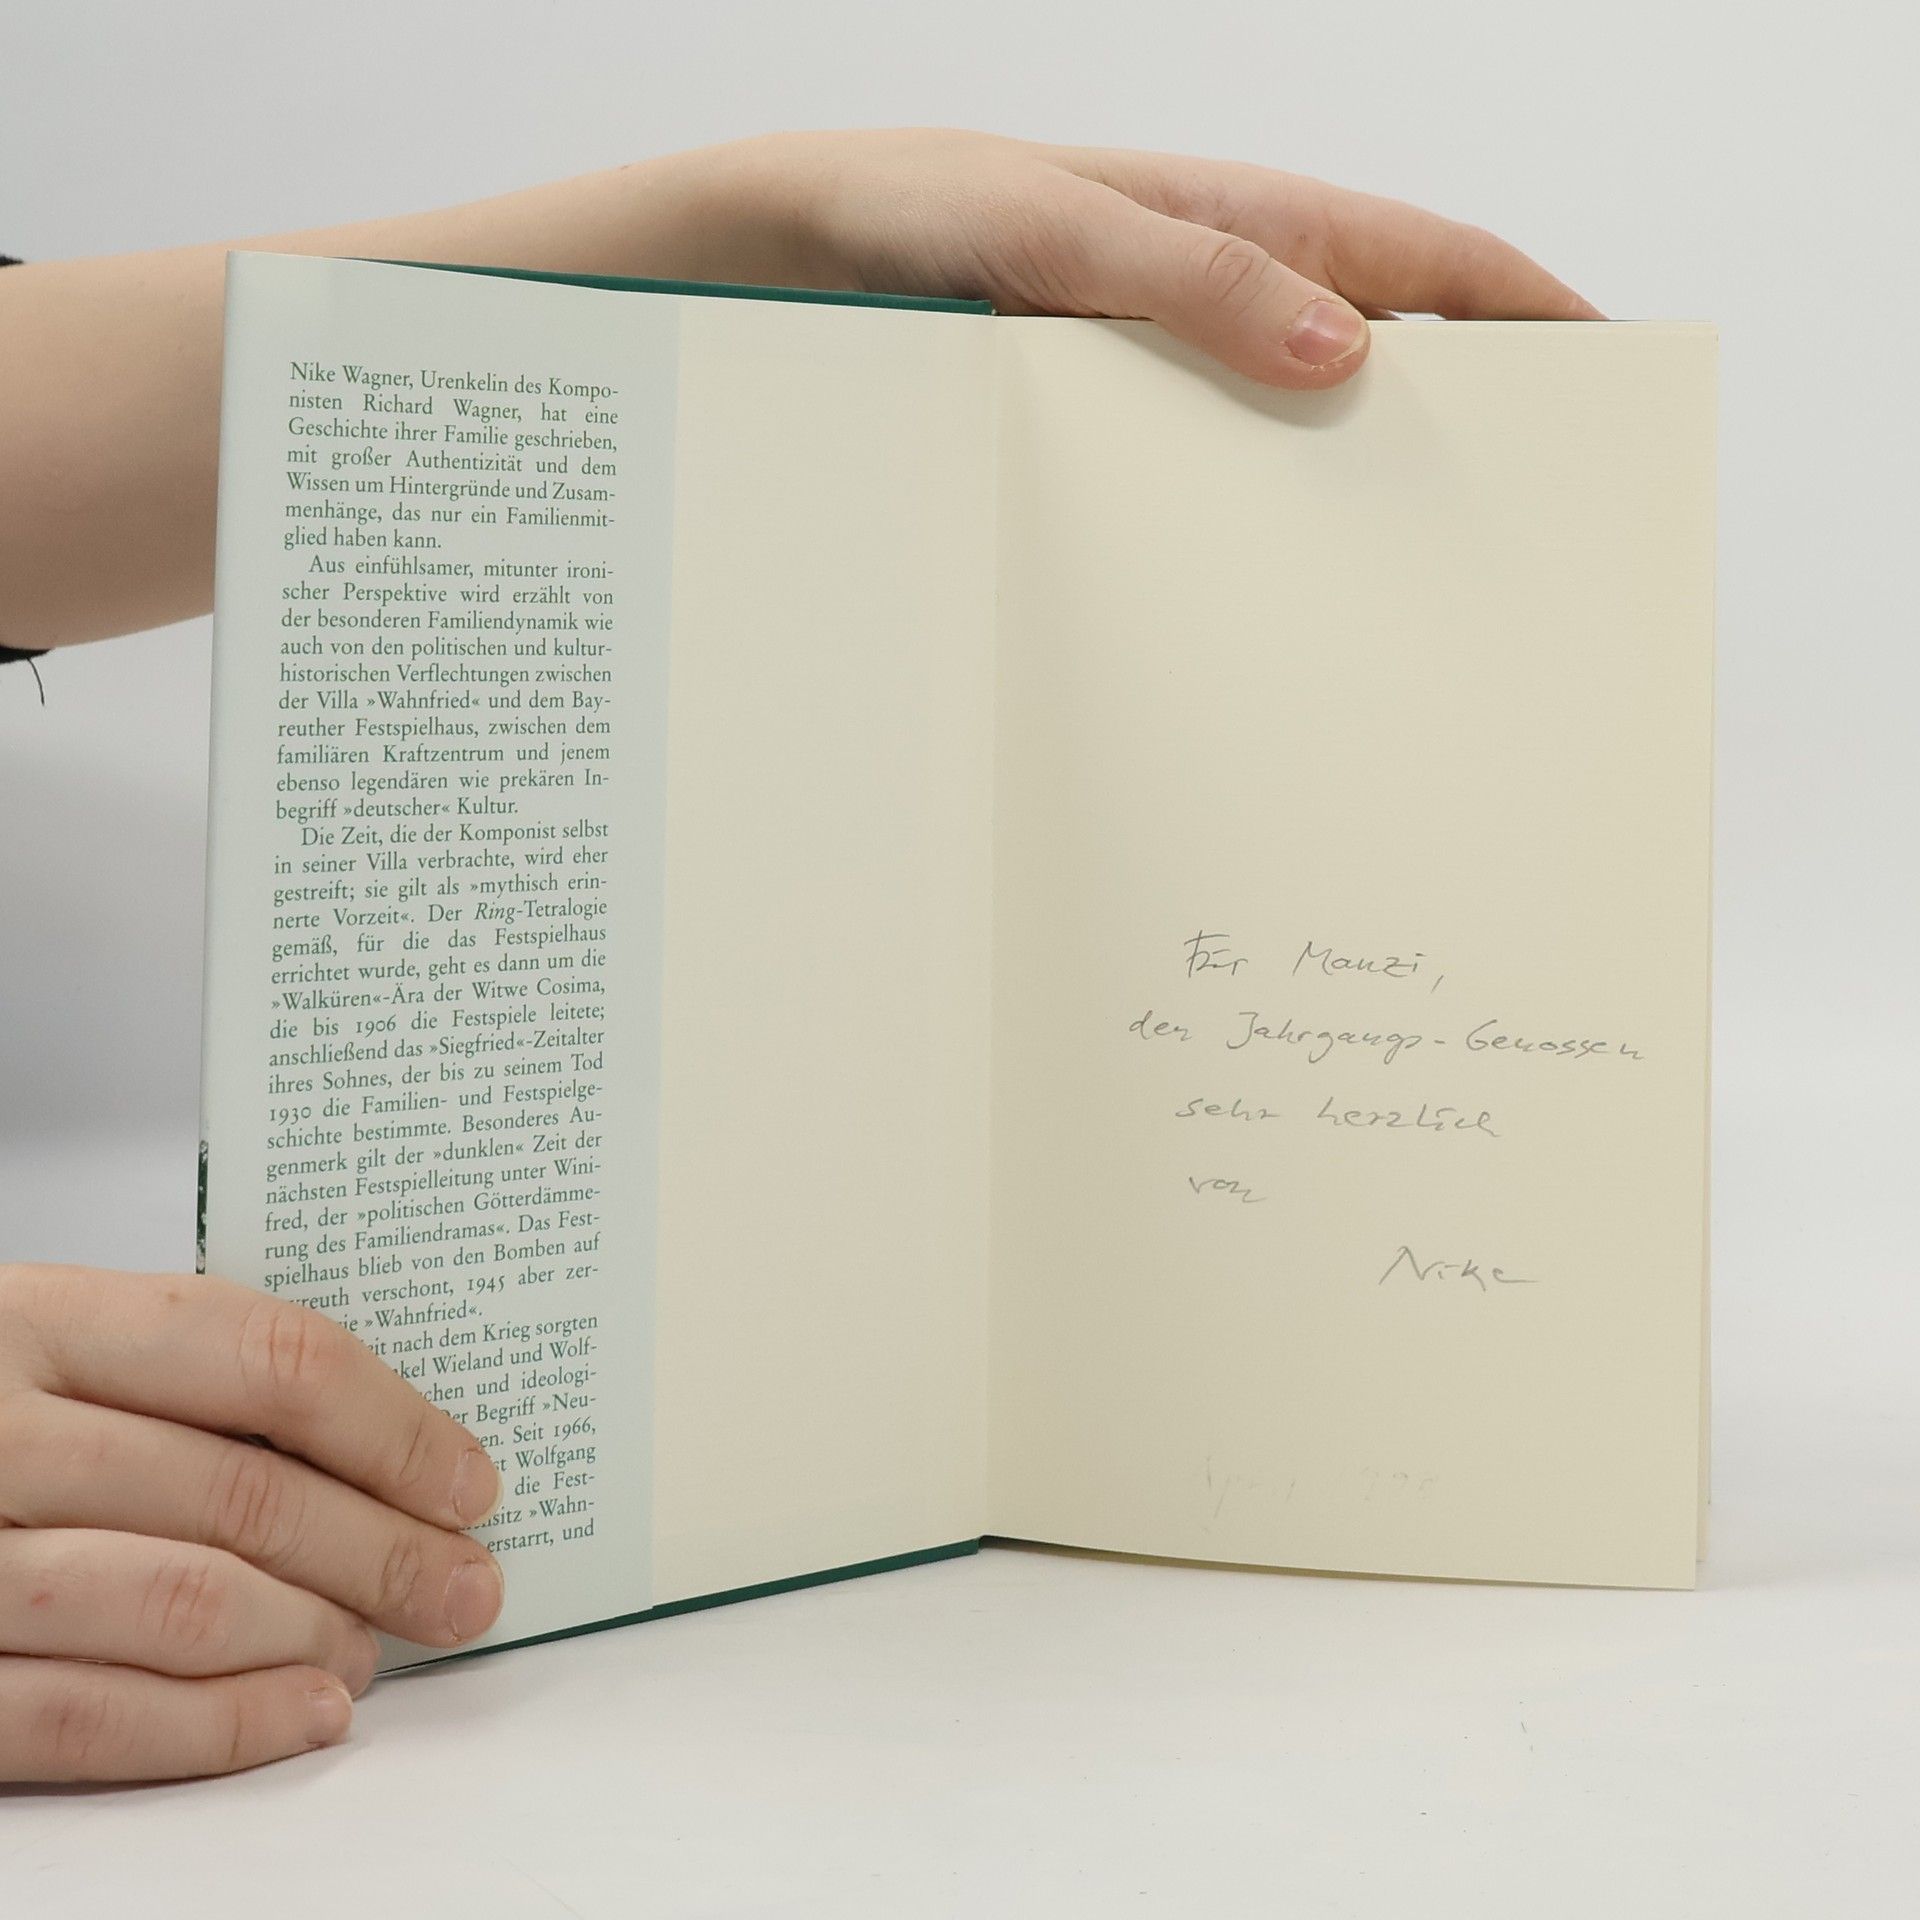 Nike Wagner, Urenkelin des Kompo-
nisten Richard Wagner, hat eine
Geschichte ihrer Familie geschrieben,
mit großer Authentizität und dem
Wissen um Hintergründe und Zusam-
menhänge, das nur ein Familienmit-
glied haben kann.
Aus einfühlsamer, mitunter ironi-
scher Perspektive wird erzählt von
der besonderen Familiendynamik wie
auch von den politischen und kultur-
historischen Verflechtungen zwischen
der Villa »Wahnfried« und dem Bay-
reuther Festspielhaus, zwischen dem
familiären Kraftzentrum und jenem
ebenso legendären wie prekären In-
begriff »deutscher« Kultur.
Die Zeit, die der Komponist selbst
in seiner Villa verbrachte, wird eher
gestreift; sie gilt als »mythisch erin-
nerte Vorzeit«. Der Ring-Tetralogie
gemäß, für die das Festspielhaus
errichtet wurde, geht es dann um die
»Walküren«-Ära der Witwe Cosima,
die bis 1906 die Festspiele leitete;
anschließend das »Siegfried«-Zeitalter
ihres Sohnes, der bis zu seinem Tod
1930 die Familien- und Festspielge-
schichte bestimmte. Besonderes Au-
genmerk gilt der »dunklen« Zeit der
nächsten Festspielleitung unter Wini-
fred, der »politischen Götterdämme-
rung des Familiendramas«. Das Fest-
spielhaus blieb von den Bomben auf
reuth verschont, 1945 aber zer-
ie »Wahnfried«.
eit nach dem Krieg sorgten
nkel Wieland und Wolf-
chen und ideologi-
Der Begriff »Neu-
en. Seit 1966,
st Wolfgang
die Fest-
sitz »Wahn-
erstarrt, und
Für Manzi,
den Jahrgangs-Genossen
sehr herzlich
von
Nike